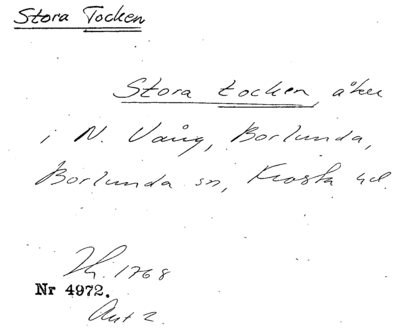 Stora Tocken
Stora tocken, åker
i N. Vång, Borlunda,
Borlunda sn, Frosta hd.
1768
Nr 4972.
Akt 2.